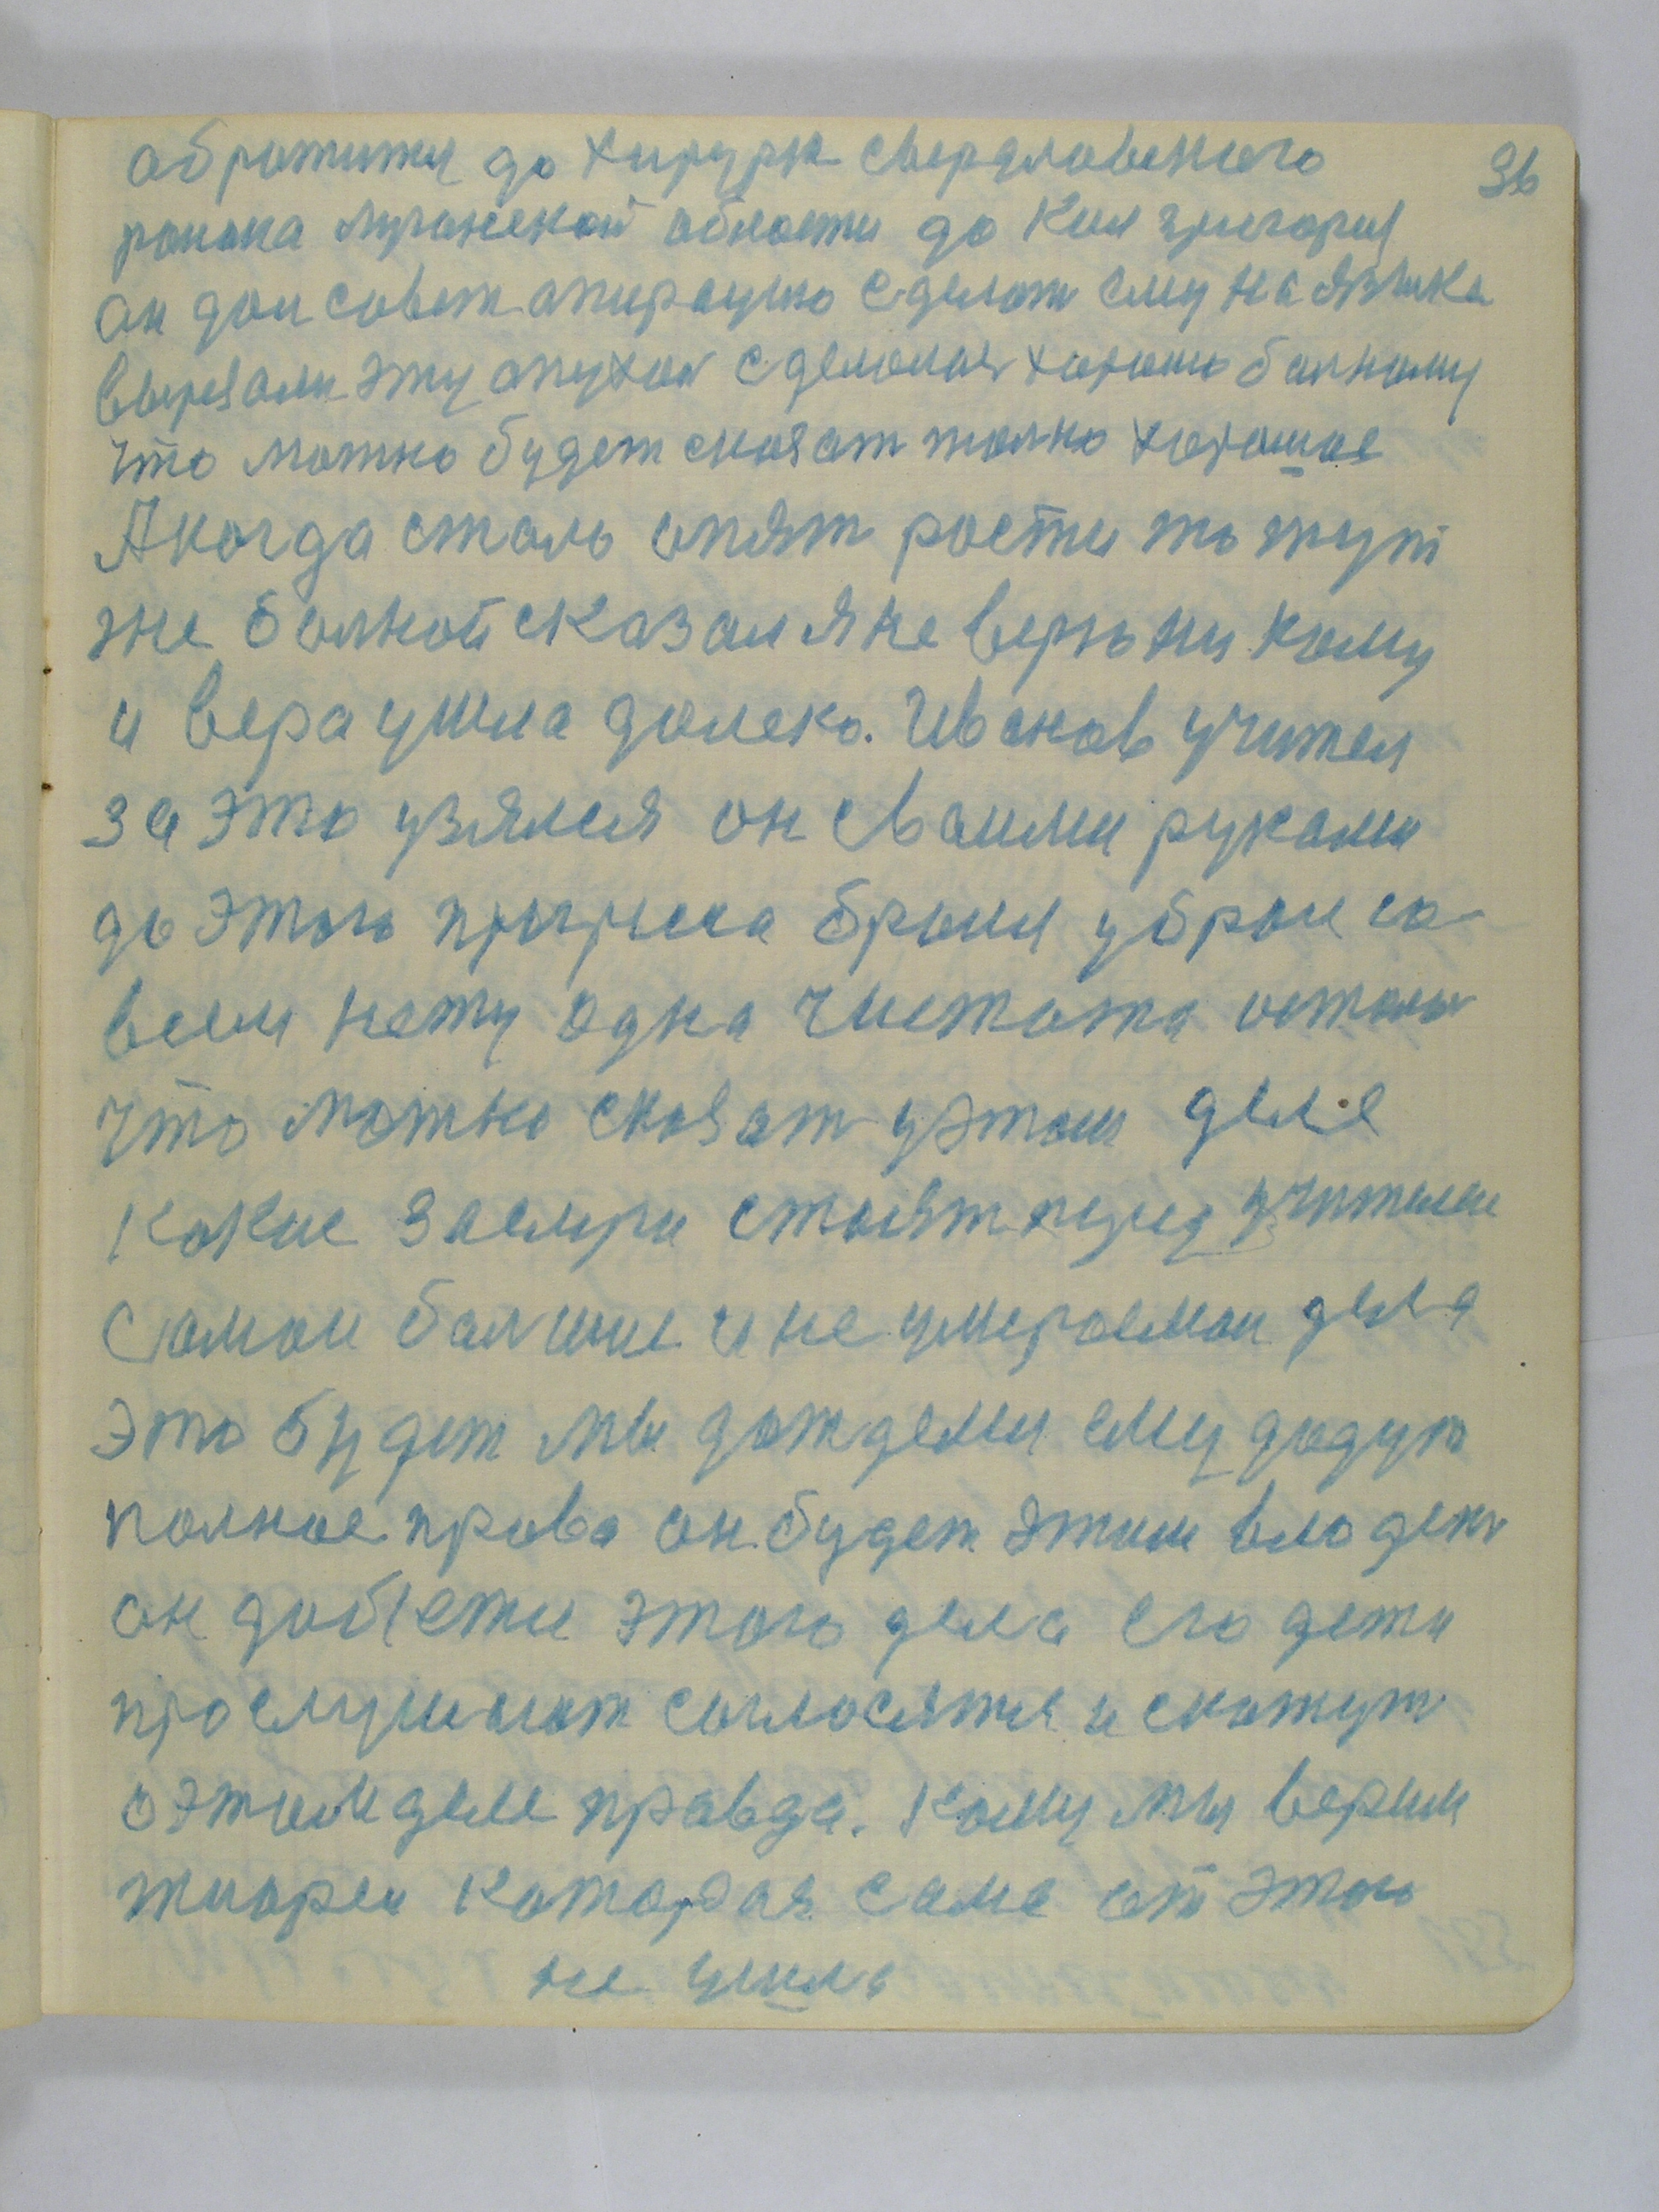 обротится до хирурк Свердловского 36
раиона луганской области до Ким григория
он дал совет апирацию сделат ему на языка
вырезали эту опухол сделалас хорошо болному
что можно будет сказат толко хорошое
А когда стало опят рости то тут
же болной сказал я не верю ни кому
и вера ушла долеко. Иванов учител
за это узялся он своими руками
до этого прогреса брался убрал со
всем нету одна чистота осталас
что можно сказат у этом деле
какие стоят перед учителем
самои болшие и не умираемои дела
это будет мы дождемся ему дадут
полное права он будет этим владет
он этого дела его дети
прослушиют согласятся и скажут
о этим деле правда. кому мы верим
которая сама от этого
не ушла